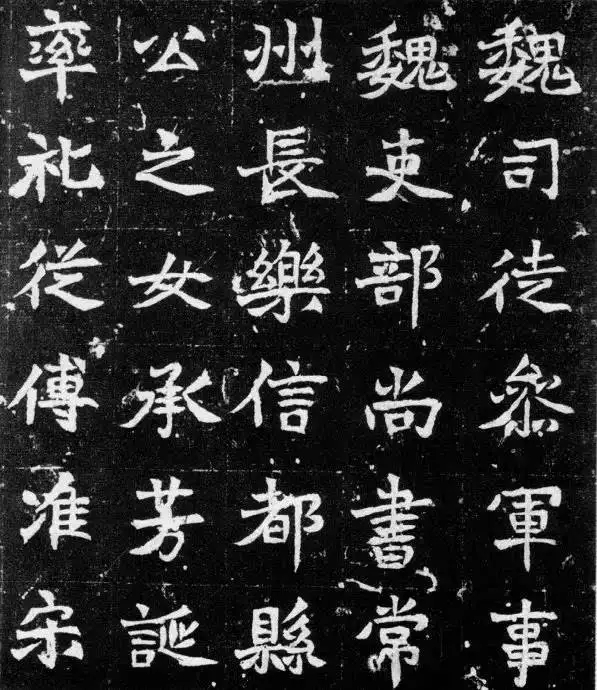 魏司徒叅軍事
魏吏部尚書常
州長樂信都縣
公之女承芳誕
率礼從傅准宋